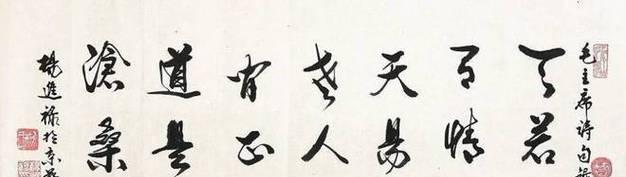 毛主席诗句
天若
有情
天易
老人
间正
道是
滄桑
楊進禄於京